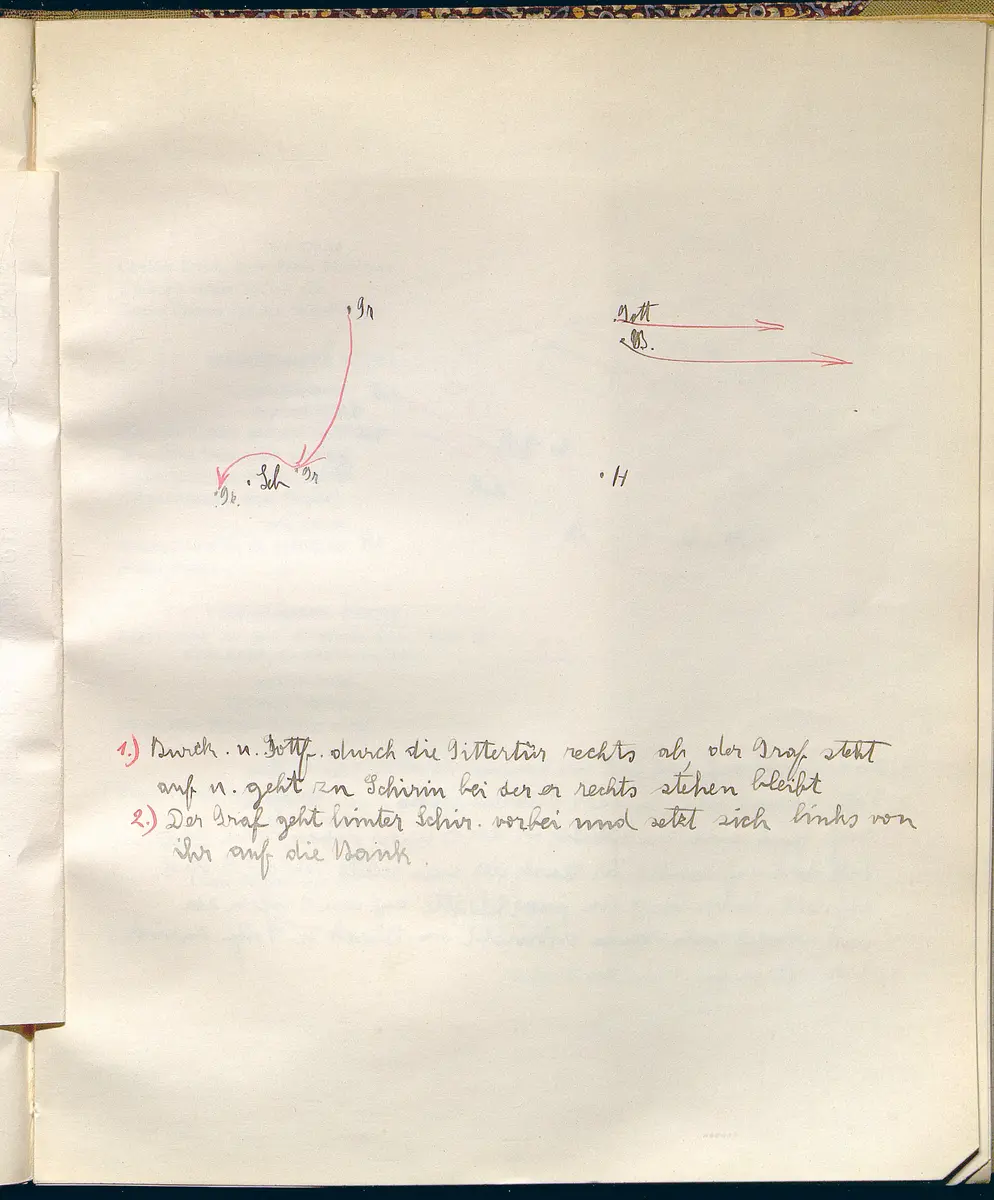 Gr
Gott
B.
Gr
Sch
Gr.
H
1.) Burck. u. Gottf. durch die Gittertür rechts ab, der Graf steht
auf u. geht zu Schirin bei der er rechts stehen bleibt
2.) Der Graf geht hinter Schir. vorbei und setzt sich links von
ihr auf die Bank.